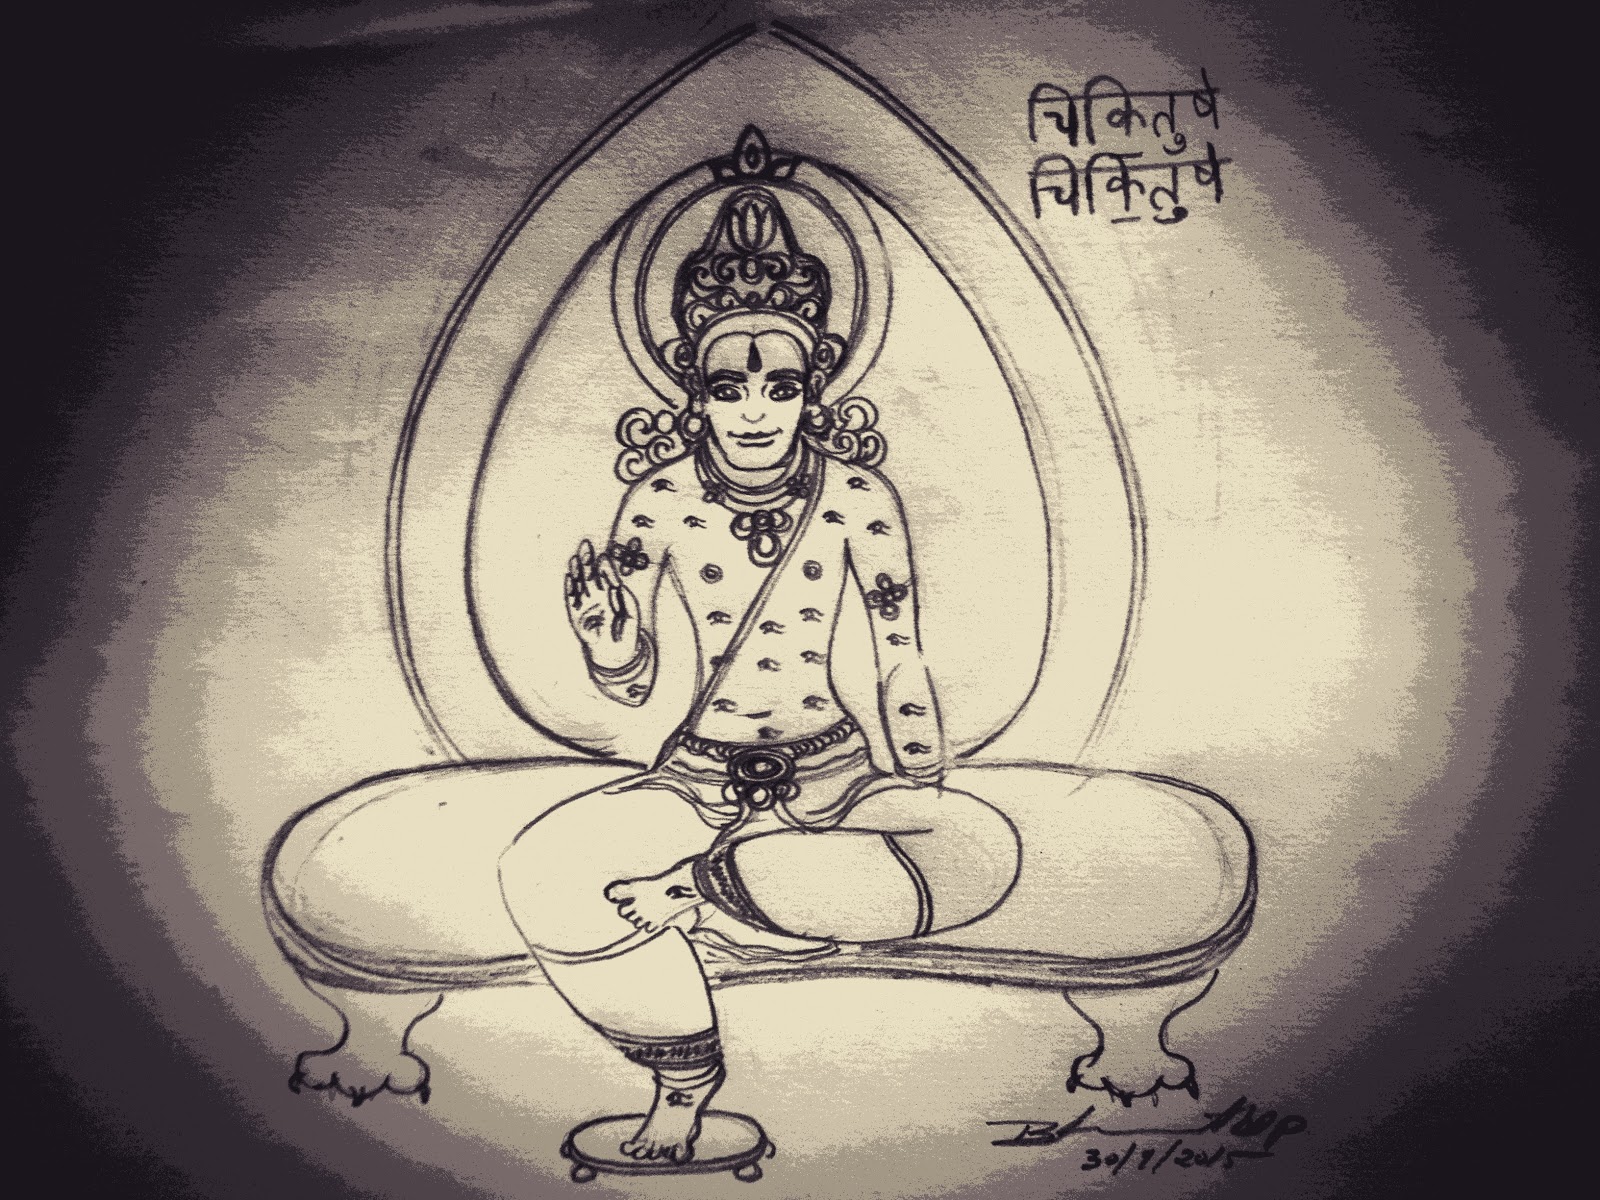 चिकितुषे
चिकितुषे
30/9/2015